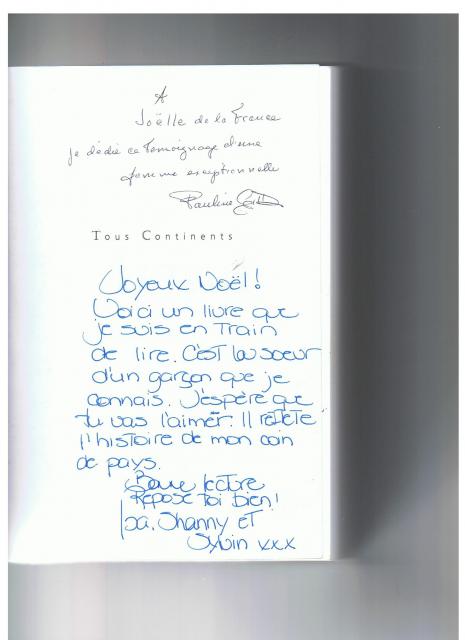 À
Joëlle de la France
je dédie ce Témoignage d'une
femme exceptionnelle
Pauline Gill
Tous Continents
Joyeux Noël!
Voici un livre que
je suis en train
de lire. C'est la soeur
d'un garçon que je
connais. J'espère que
tu vas l'aimer. Il reflète
l'histoire de mon coin
de pays.
Bonne lecture
Repose toi bien!
Isa, Shanny et
Sylvin xxx